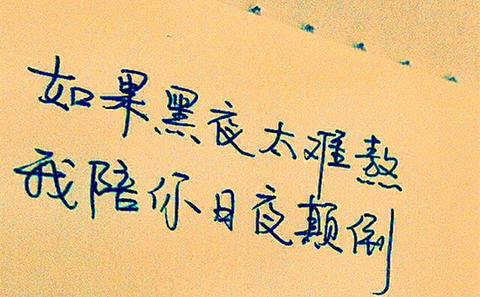 如果黑夜太难熬
我陪你日夜颠倒